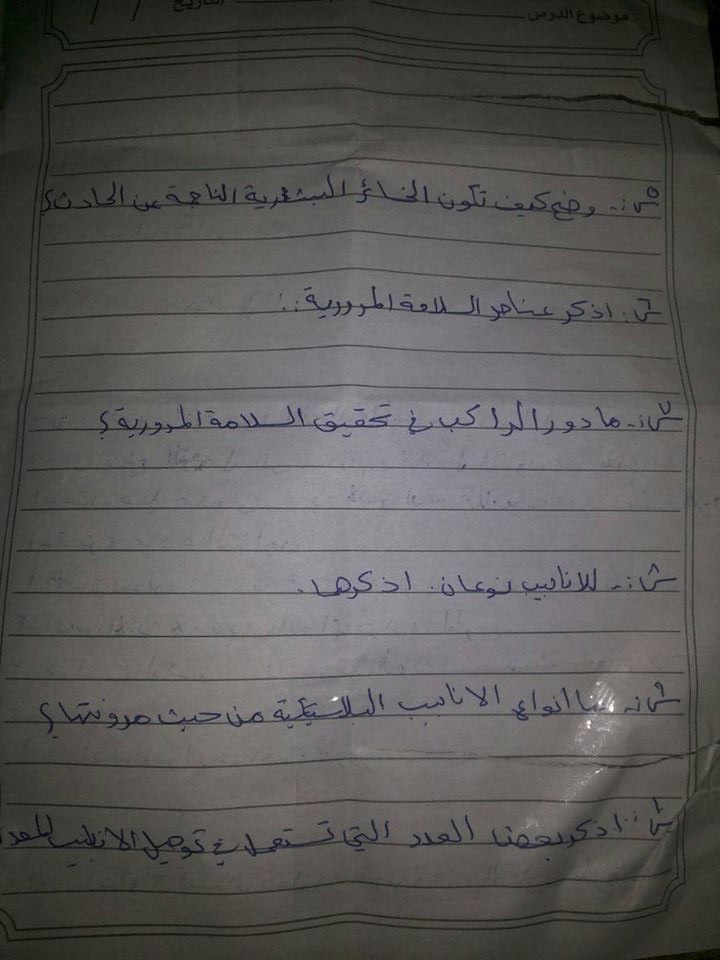 موضوع الدرس التاريخ / /
س:- وضح كيف تكون الخسائر البشرية الناجمة عن الحادث؟
س:. اذكر عناصر السلامة المرورية:.
س:- ما دور الراكب في تحقيق السلامة المرورية؟
س:- للانابيب نوعان. اذكرها.
س:- ما انواع الانابيب البلاستيكية من حيث مرونتها؟
س:. اذكر بعض العدد التي تستعمل في توصيل الانابيب